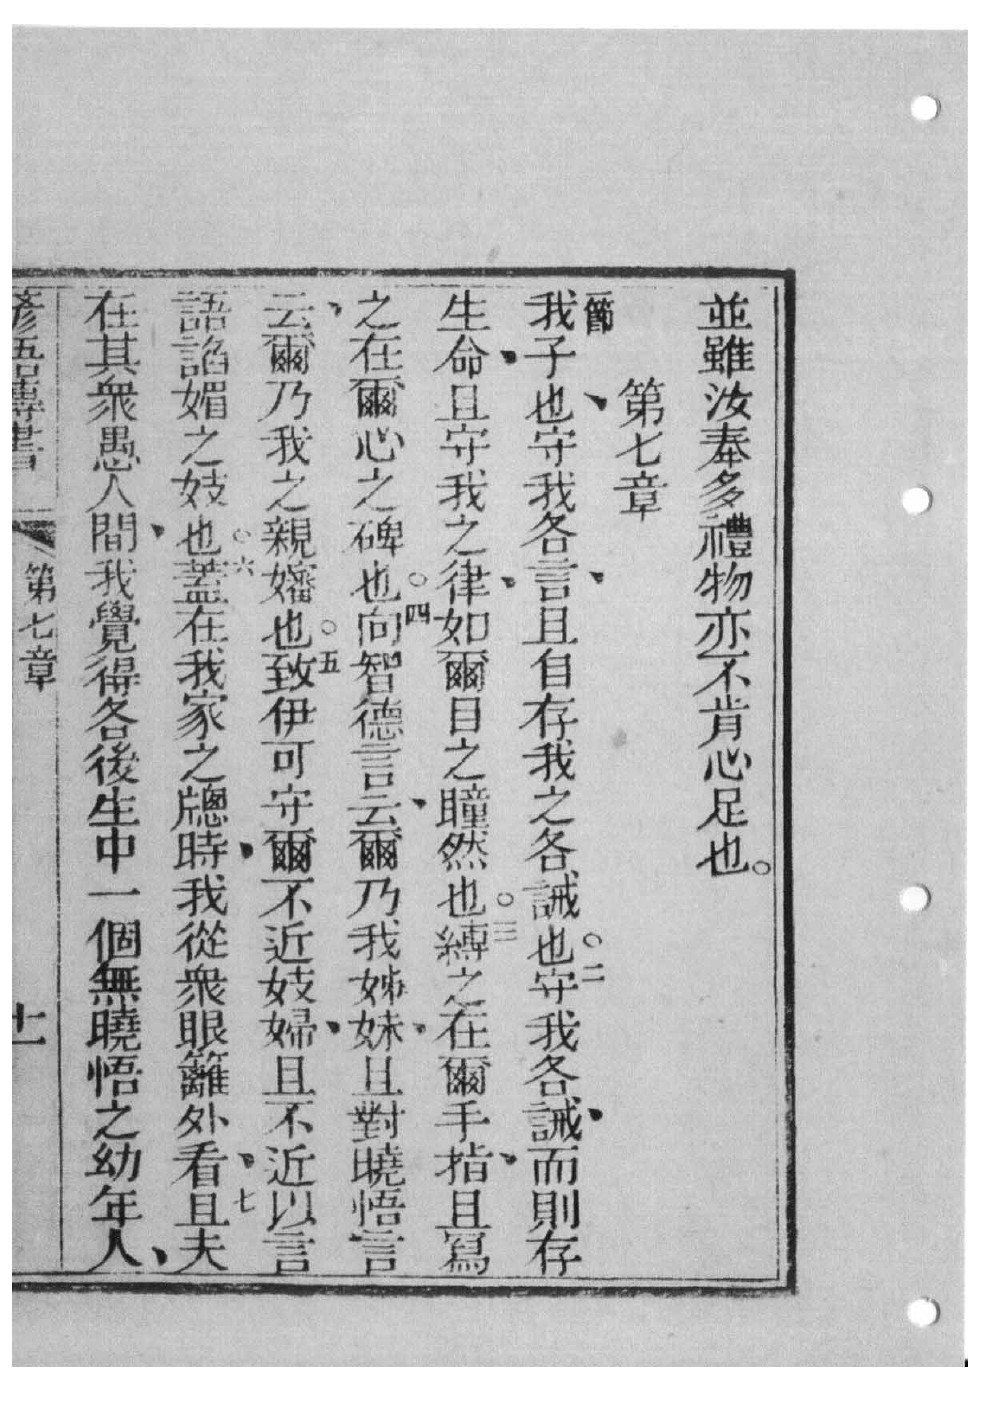 並雖汝奉多禮物亦不肯心足也。
第七章
一節我子也、守我各言、且自存我之各誡也○二守我各誡、而則存
生命、且守我之律、如爾目之瞳然也○三縛之在爾手指、且寫
之在爾心之碑也○四向智德言云、爾乃我姊妹、且對曉悟言
云、爾乃我之親嬸也○五致伊可守爾不近妓婦、且不近以言
語諂媚之妓也○六蓋在我家之牕時、我從衆眼籬外看、七且夫
在其衆愚人間、我覺得各後生中一個無曉悟之幼年人、
諺語傳書 第七章 十一